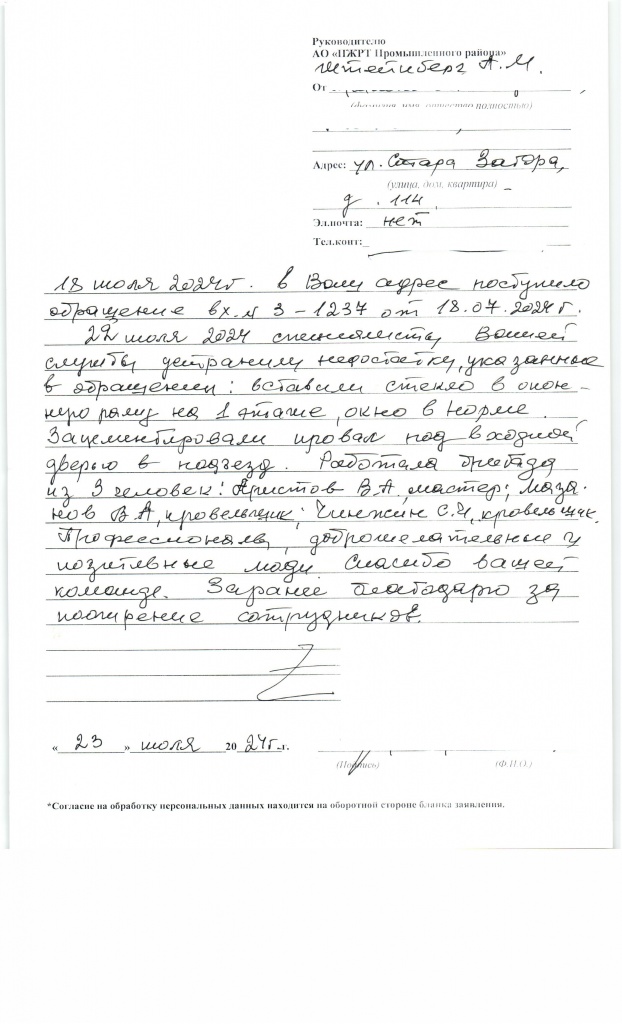 Руководителю
АО «ПЖРТ Промышленного района»
Штейнберг А.М.
От
(фамилия, имя, отчество полностью)
Адрес: ул. Стара Загора,
(улица, дом, квартира)
д. 114
Эл.почта: нет
Тел.конт:
18 июля 2024г. в Ваш адрес поступило
обращение вх.№ 3-1237 от 18.07.2024г.
22 июля 2024 специалисты Вашей
службы устранили недостатки, указанные
в обращении: вставили стекло в окон-
ную раму на 1 этаже, окно в норме.
Зацементировали провал под входной
дверью в подъезд. Работала бригада
из 3 человек: Аристов В.А, мастер; Маза-
нов В.А, кровельщик; Чинжин С.И, кровельщик.
Профессионалы, доброжелательные и
позитивные люди Спасибо вашей
команде. Заранее благодарю за
поощрение сотрудников.
«23» июля 2024г.г.
(Подпись) (Ф.И.О.)
*Согласие на обработку персональных данных находится на оборотной стороне бланка заявления.